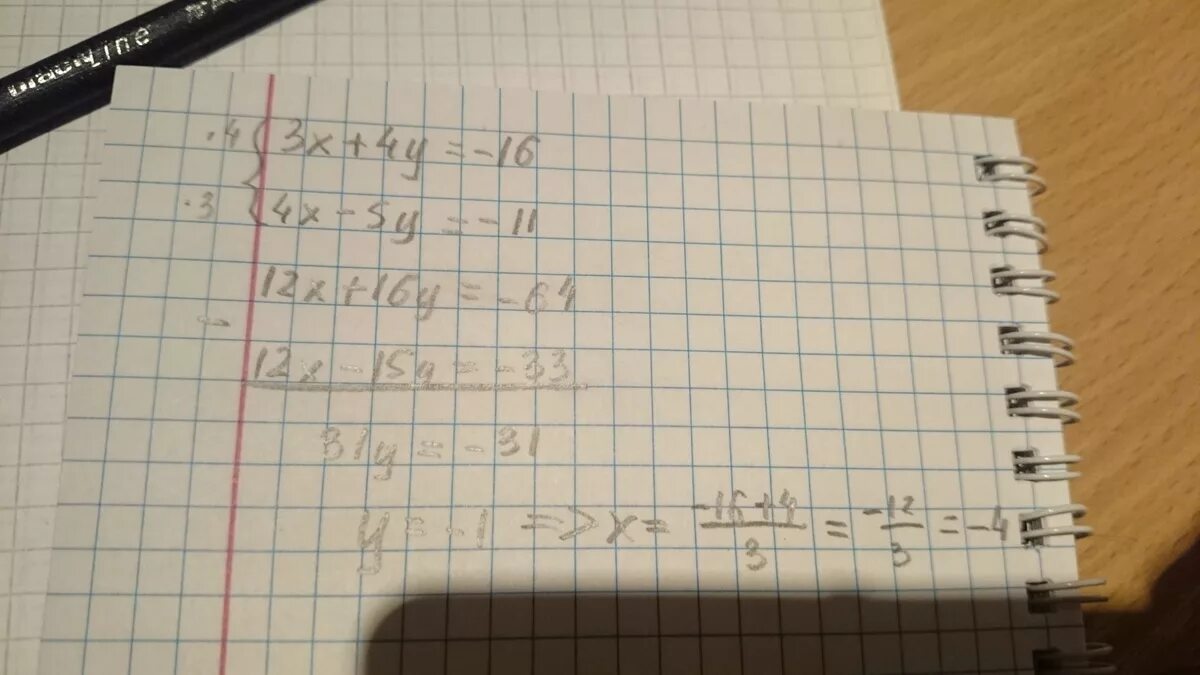 blackline
·4 { 3x + 4y = -16
·3 { 4x - 5y = -11
12x + 16y = -64
-
12x - 15y = -33
31y = -31
y = -1 => x = \frac{-16+4}{3} = \frac{-12}{3} = -4